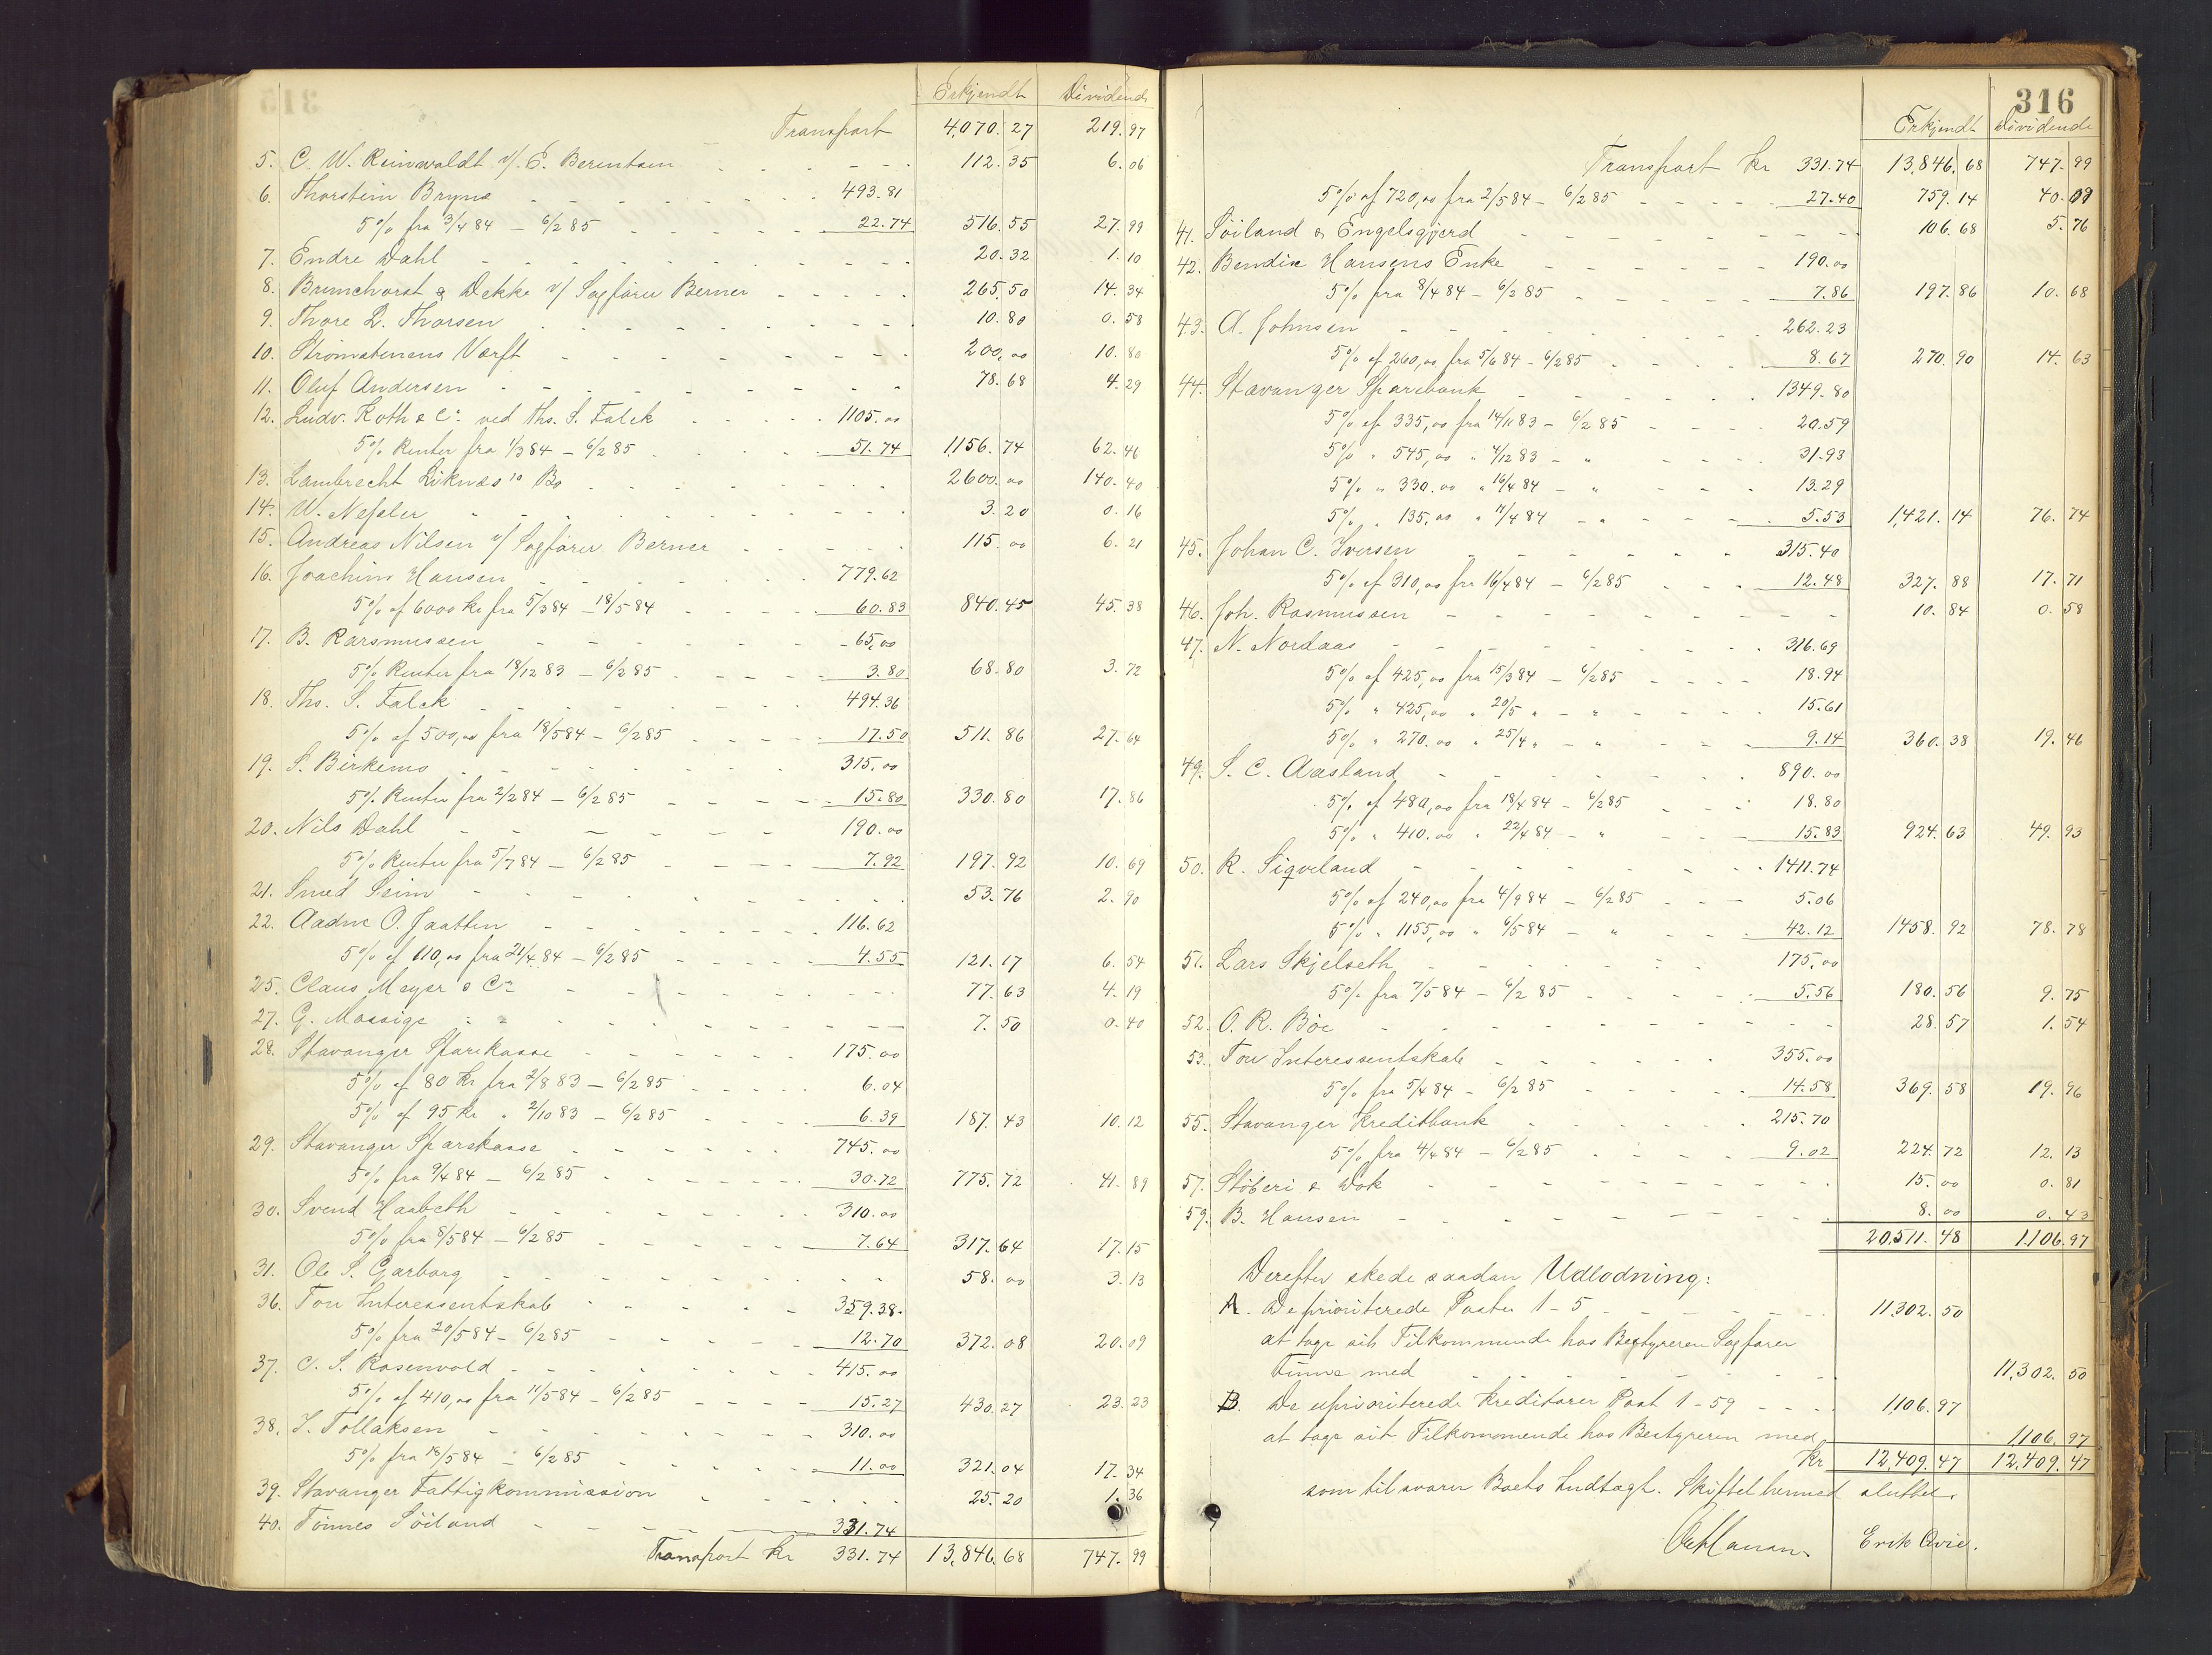 Erkjendt Dividende
Transport 4,070.27 219.97
5. C. W. Reinwaldt v/ E. Berentsen 112.35 6.06
6. Thorstein Bryne 493.81
5% fra 3/4 84 – 6/2 85 22.74 516.55 27.99
7. Endre Dahl 20.32 1.10
8. Brunchorst & Dekke v/ Sagfører Berner 265.50 14.34
9. Thore L. Thorsen 10.80 0.58
10. Strømstenens Værft 200.00 10.80
11. Oluf Andersen 78.68 4.29
12. Ludv. Roth & Co. ved Ths. S. Falck 1105.00
5% Renter fra 1/3 84 – 6/2 85 51.74 1,156.74 62.46
13. Lambrecht Liknæs's Bo 2600.00 140.40
14. W. Nessler 3.20 0.16
15. Andreas Nilsen v/ Sagfører Berner 115.00 6.21
16. Joachim Hansen 779.62
5% af 6000 Kr fra 5/3 84 – 18/5 84 60.83 840.45 45.38
17. B. Rarsmussen 65,00
5% Renter fra 18/12 83 – 6/2 85 3.80 68.80 3.72
18. Ths. S. Falck 494.36
5% af 500,00 fra 18/5 84 – 6/2 85 17.50 511.86 27.64
19. S. Birkemo 315.00
5% Renter fra 2/2 84 – 6/2 85 15.80 330.80 17.86
20. Nils Dahl 190.00
5% Renter fra 5/7 84 – 6/2 85 7.92 197.92 10.69
21. Smed Seim 53.76 2.90
22. Aadne O. Jaatten 116.62
5% af 110,00 fra 21/4 84 – 6/2 85 4.55 121.17 6.54
25. Claus Meyer & Co 77.63 4.19
27. G. Massige 7.50 0.40
28. Stavanger Sparekasse 175.00
5% af 80 Kr fra 2/8 83 – 6/2 85 6.04
5% af 95 Kr " 2/10 83 – 6/2 85 6.39 187.43 10.12
29. Stavanger Sparekasse 745.00
5% fra 9/4 84 – 6/2 85 30.72 775.72 41.89
30. Svend Haabeth 310.00
5% fra 8/5 84 – 6/2 85 7.64 317.64 17.15
31. Ole S. Garborg 58.00 3.13
36. Tou Interessentskab 359.38
5% fra 20/5 84 – 6/2 85 12.70 372.08 20.09
37. C. S. Rosenvold 415.00
5% af 410,00 fra 11/5 84 – 6/2 85 15.27 430.27 23.23
38. J. Tollaksen 310.00
5% fra 18/5 84 – 6/2 85 11.00 321.04 17.34
39. Stavanger Fattigkommission 25.20 1.36
40. Tønnes Søiland 331.74
Transport Kr 331.74 13,846.68 747.99
316
Erkjendt Dividende
Transport Kr 331.74 13,846.68 747.99
5% af 720,00 fra 2/5 84 – 6/2 85 27.40 759.14 40.09
41. Søiland & Engelsgjerd 106.68 5.76
42. Bendix Hansens Enke 190.00
5% fra 8/4 84 – 6/2 85 7.86 197.86 10.68
43. A. Johnsen 262.23
5% af 260,00 fra 5/6 84 – 6/2 85 8.67 270.90 14.63
44. Stavanger Sparebank 1349.80
5% af 335,00 fra 14/11 83 – 6/2 85 20.59
5% " 545,00 " 4/12 83 – " 31.93
5% " 330.00 " 16/4 84 – " 13.29
5% " 135,00 " 11/4 84 – " 5.53 1,421.14 76.74
45. Johan C. Iversen 315.40
5% af 310,00 fra 16/4 84 – 6/2 85 12.48 327.88 17.71
46. Joh. Rasmussen 10.84 0.58
47. N. Nordaas 316.69
5% af 425,00 fra 15/3 84 – 6/2 85 18.94
5% " 425,00 " 20/5 " – " 15.61
5% " 270.00 " 25/4 " – " 9.14 360.38 19.46
49. S. C. Aasland 890.00
5% af 480,00 fra 18/4 84 – 6/2 85 18.80
5% " 410.00 " 22/4 84 – " 15.83 924.63 49.93
50. R. Siqveland 1411.74
5% af 240,00 fra 4/9 84 – 6/2 85 5.06
5% " 1155,00 " 6/5 84 – " 42.12 1458.92 78.78
51. Lars Skjelseth 175,00
5% fra 7/5 84 – 6/2 85 5.56 180.56 9.75
52. O. R. Bøe 28.57 1.54
53. Tou Interessentskab 355.00
5% fra 5/4 84 – 6/2 85 14.58 369.58 19.96
55. Stavanger Kreditbank 215.70
5% fra 4/4 84 – 6/2 85 9.02 224.72 12.13
57. Støberi & Dok 15.00 0.81
59. B. Hansen 8.00 0.43
20,511.48 1,106.97
Derefter skede saadan Udlodning:
A. De prioriterede Poster 1–5 11,302.50
at tage sit Tilkommende hos Bestyreren Sagfører
med 11,302.50
B. De uprioriterede Kreditorer Post 1–59 1,106.97
at tage sit Tilkommende hos Bestyreren med 1,106.97
Kr 12,409.47 12,409.47
som tilsvarer Boets Indtægt. Skiftet hermed sluttet.
Erik Qvie.